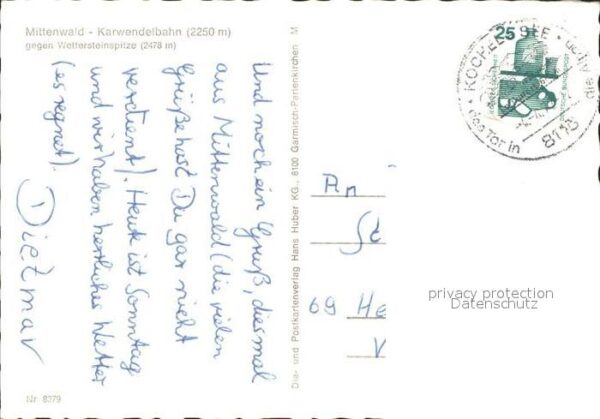 Mittenwald - Karwendelbahn (2250 m)
gegen Wettersteinspitze (2478 m)
Und noch ein Gruß, diesmal
aus Mittenwald (die vielen
Grüße hast Du gar nicht
verdient). Heute ist Sonntag
und wir haben herrliches Wetter
(es regnet).
Dietmar
Nr. 8379
Dia- und Postkartenverlag Hans Huber KG., 8100 Garmisch-Partenkirchen M
25
KOCHEL A. SEE
das Tor in die
8113
An
69 He
privacy protection
Datenschutz